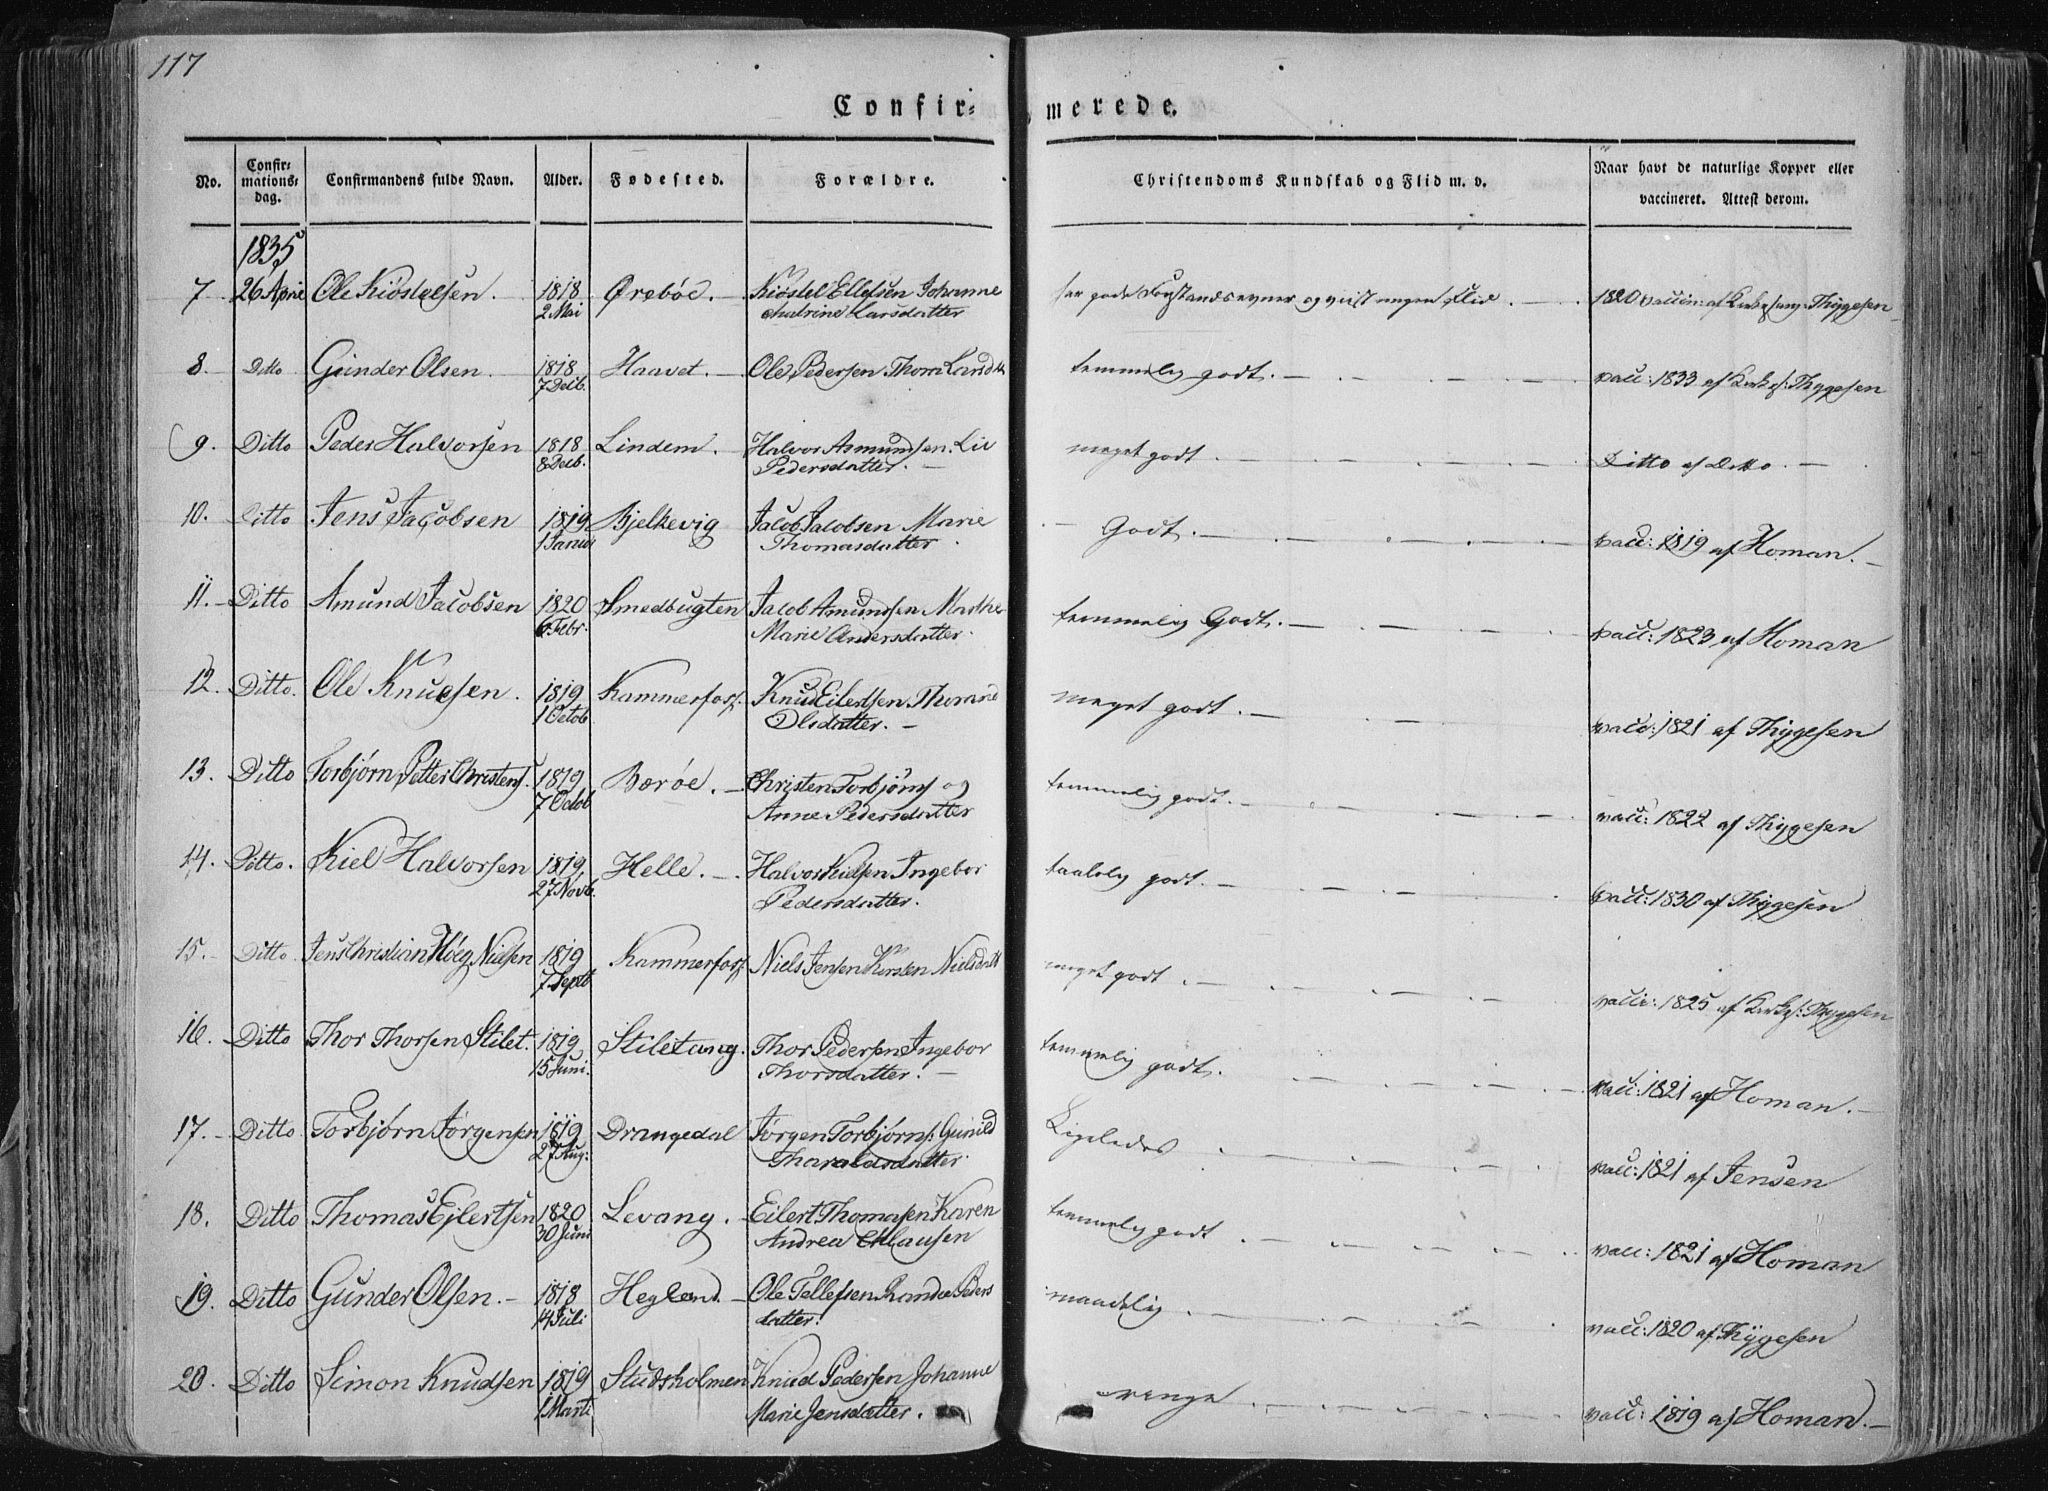 117
Confir- merede.
No. Confir- mations- dag. Confirmandens fulde Navn. Alder. Fødested. Forældre. Christendoms Kundskab og Flid m. v. Naar havt de naturlige Kopper eller vaccineret. Attest derom.
1835
7 26 April Ole Kiöstelsen. 1818 Örebøe. Kiöstel Ellefsen Johanne har gode Forstandsevner og viist megen Flid. 1820 vaccin: af Kirkesang: Thygesen
2 Mai Cathrine Larsdatter
8 Ditto Gunder Olsen. 1818 Haavet. Ole Pedersen Thore Larsd. temmelig godt.
7 Decb. vacc: 1833 af Kirkes: Thygesen
9. Ditto Peder Halvorsen 1818 Lindem. Halvor Asmundsen. Liv meget godt
8 Decb. Pedersdatter. Ditto af Ditto.
10. Ditto Jens Jacobsen 1819 Bjelkevig Jacob Jacobsen Marie Godt.
1 Januar Thomasdatter. vacc: 1819 af Homan.
11. Ditto Amund Jacobsen 1820 Smedbugten Jacob Amundsen Marthe temmelig Godt.
6 Febr: Marie Andersdatter. vacc: 1823 af Homan
12. Ditto. Ole Knudsen. 1819 Kammerfoss. Knud Eilertsen Thorand meget godt.
1 Octob Olsdatter. vacc: 1821 af Thygesen
13. Ditto Torbjørn Petter Christens. 1819 Barøe. Christen Torbjørns og temmelig godt.
7 Octob Anne Pedersdatter vacc: 1822 af Thygesen
14. Ditto. Kiel Halvorsen 1819 Helle. Halvor Kielsen Ingebor taalelig godt.
27 Novb. Pedersdatter. vacc: 1830 af Thygesen
15. Ditto Jens Christian Høeg Nielsen 1819 Kammerfoss Niels Jensen Kirsten Nielsdatt meget godt.
7 Septb vacc: 1825 af Kirkes: Thygesen
16. Ditto Thor Thorsen Stilet. 1819 Stiletang. Thor Pedersen Ingebor temmelig godt.
15 Juni. Thorsdatter. vacc: 1821 af Homan.
17. Ditto Torbjørn Jørgensen 1819 Drangedal Jørgen Torbjørns: Gunild Ligeledes
27 Aug: Tharaldsdatter vacc: 1821 af Jensen
18. Ditto Thomas Ejlertsen 1820 Levang. Eilert Thomasen Karen temmelig godt
30 Juni Andrea Clausen vacc: 1821 af Homan
19. Ditto Gunder Olsen. 1818 Hegland. Ole Tellefsen Randie Peders maadelig
14 Juli datter. vacc: 1820 af Thygesen
20. Ditto Simon Knudsen 1819 Studsholmen Knud Pedersen Johanne
1 Marti Marie Jensdatter. vacc: 1819 af Homan.